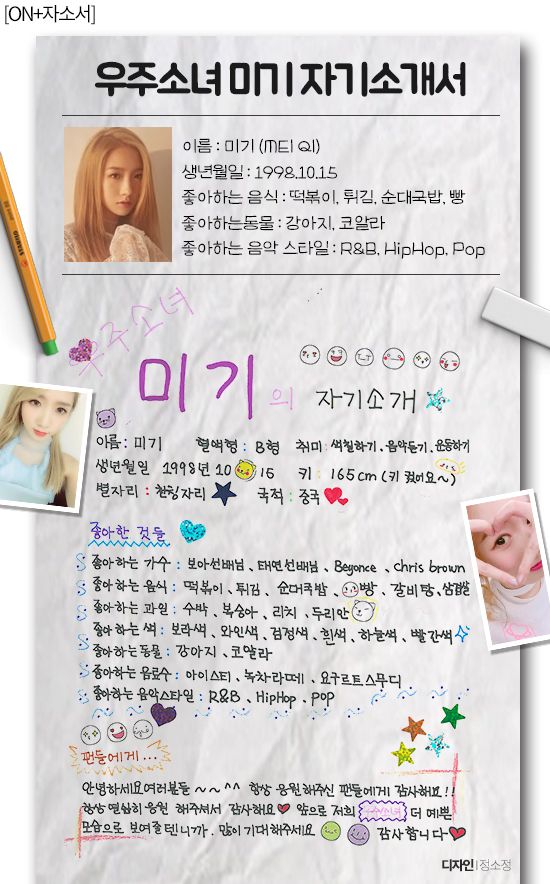 [ON+자소서]
우주소녀 미기 자기소개서
이름 : 미기 (MEI QI)
생년월일 : 1998.10.15
좋아하는 음식 : 떡볶이, 튀김, 순대국밥, 빵
좋아하는동물 : 강아지, 코알라
좋아하는 음악 스타일 : R&B, HipHop, Pop
우주소녀
미기의 자기소개
이름: 미기 혈액형 : B형 취미: 색칠하기、음악듣기、운동하기
생년월일 1998년 10 15 키 : 165cm (키 컸어요~)
별자리 : 천칭자리 국적 : 중국
좋아한 것들
좋아하는 가수 : 보아선배님、태연선배님、Beyonce、chris brown
좋아하는 음식 : 떡볶이、튀김、순대국밥、빵、갈비탕、삼겹살
좋아하는 과일 : 수박、복숭아、리치、두리안
좋아하는 색 : 보라색、와인색、검정색、흰색、하늘색、빨간색
좋아하는 동물 : 강아지、코알라
좋아하는 음료수 : 아이스티、녹차라떼、요구르트스무디
좋아하는 음악스타일 : R&B、HipHop、POP
팬들에게...
안녕하세요여러분들 ~~^^ 항상 응원해주신 팬들에게 감사해요!!
항상 열심히 응원 해주셔서 감사해요♥ 앞으로 저희 우주소녀 더 예쁜
모습으로 보여줄 텐니가. 많이 기대해주세요 감사합니다♥
디자인 | 정소정